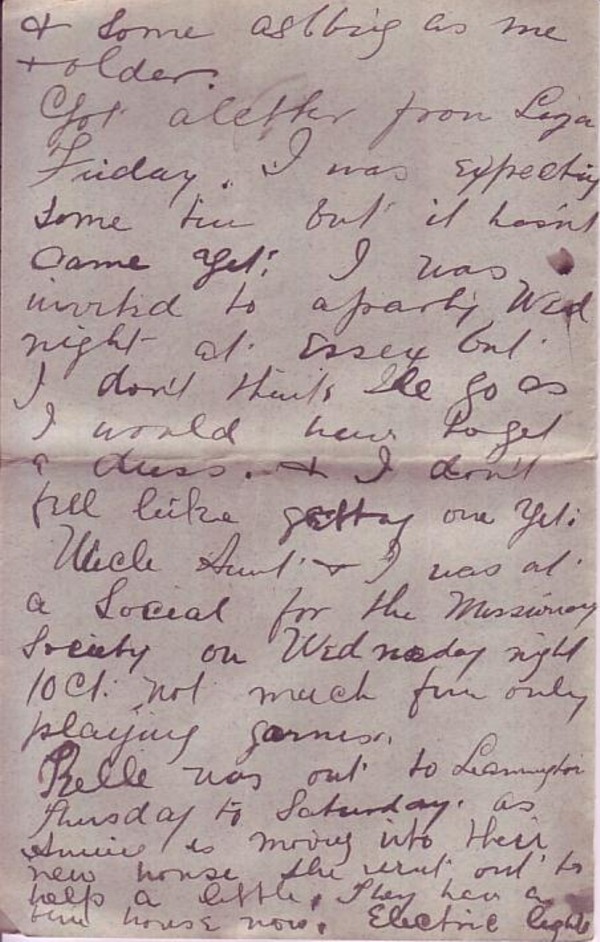 & some as big as me
& older.
Got a letter from Liza
Friday. I was expecting
some          but it hasn't
came yet. I was
invited to a party Wed
night at Essex but
I don't think Ile go as
I would have to get
a dress. & I don't
fell like getting one yet.
Uncle Aunt & I was at
a Social for the Missionary
Society on Wednesday night
10 Ct. not much fun only
playing games.
Belle was out to Leamington
Thursday to Saturday. as
Annie is moving into their
new house she went out to
help a little. They have a
fine house now. Electric lights